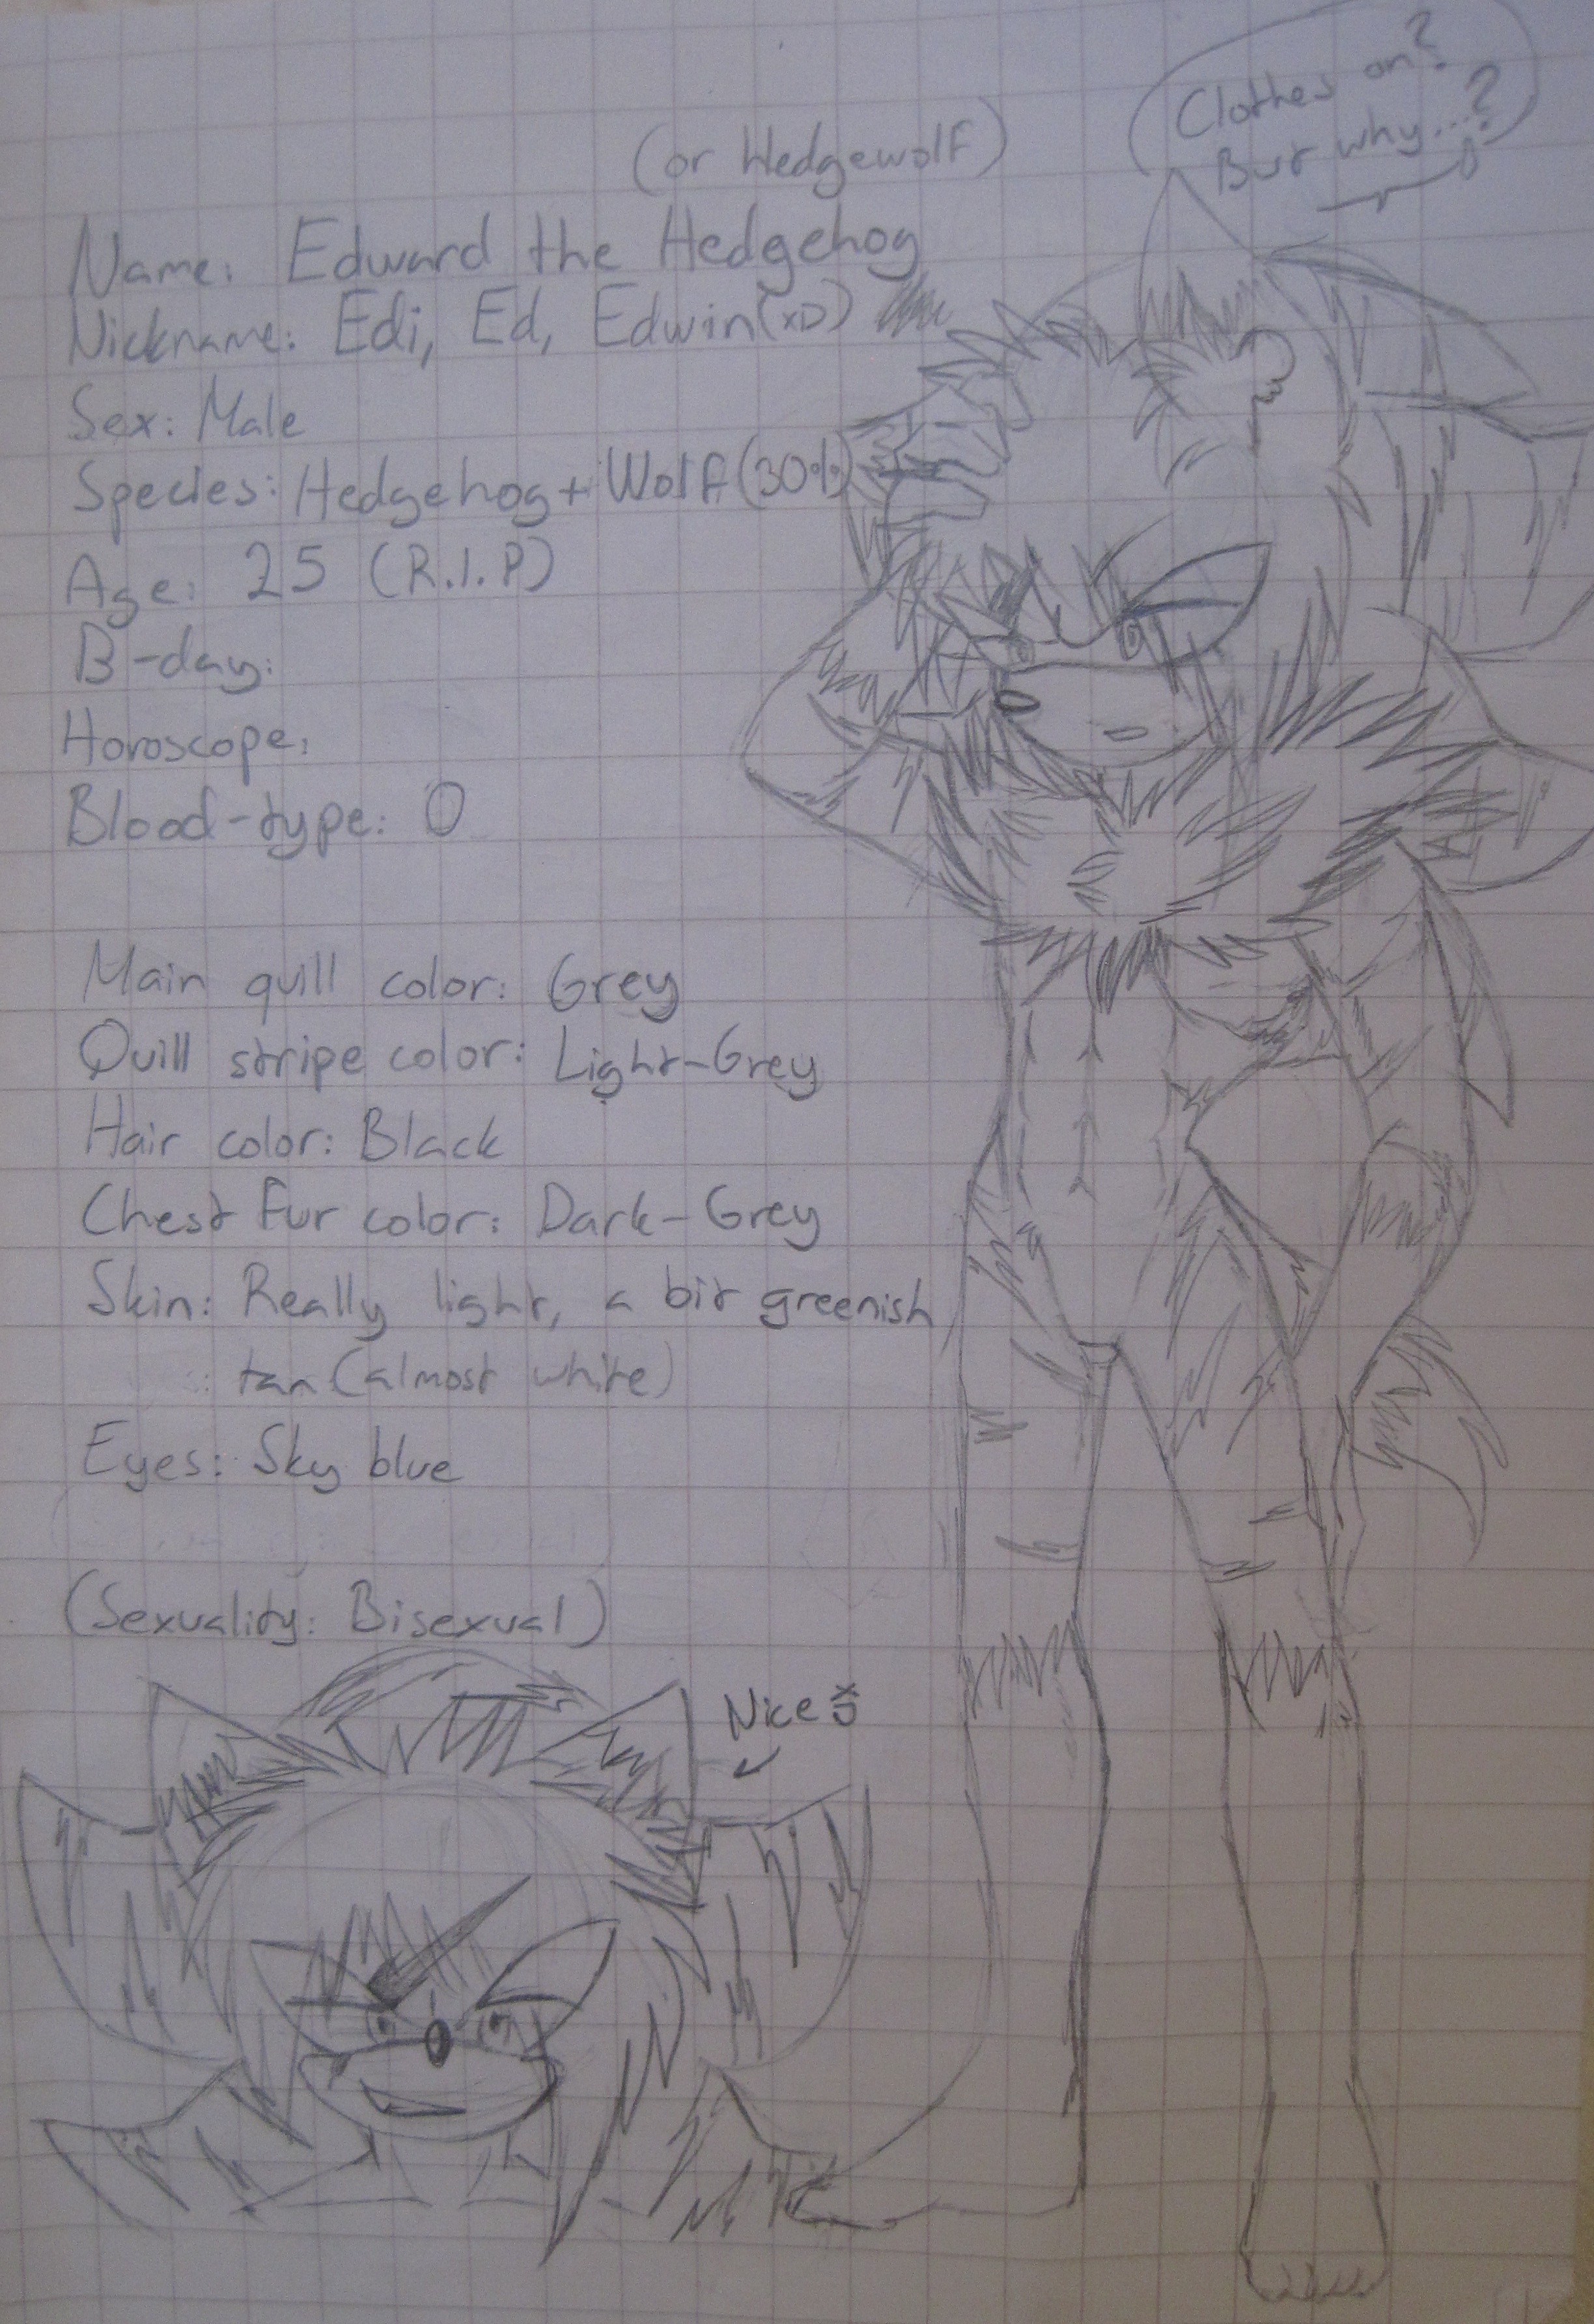 Clothes on?
But why...?
(or Hedgewolf)
Name: Edward the Hedgehog
Nickname: Edi, Ed, Edwin(xD)
Sex: Male
Species: Hedgehog + Wolf (30%)
Age: 25 (R.I.P)
B-day:
Horoscope:
Blood-type: 0
Main quill color: Grey
Quill stripe color: Light-Grey
Hair color: Black
Chest Fur color: Dark-Grey
Skin: Really light, a bit greenish
tan (almost white)
Eyes: Sky blue
(Sexuality: Bisexual)
Nice